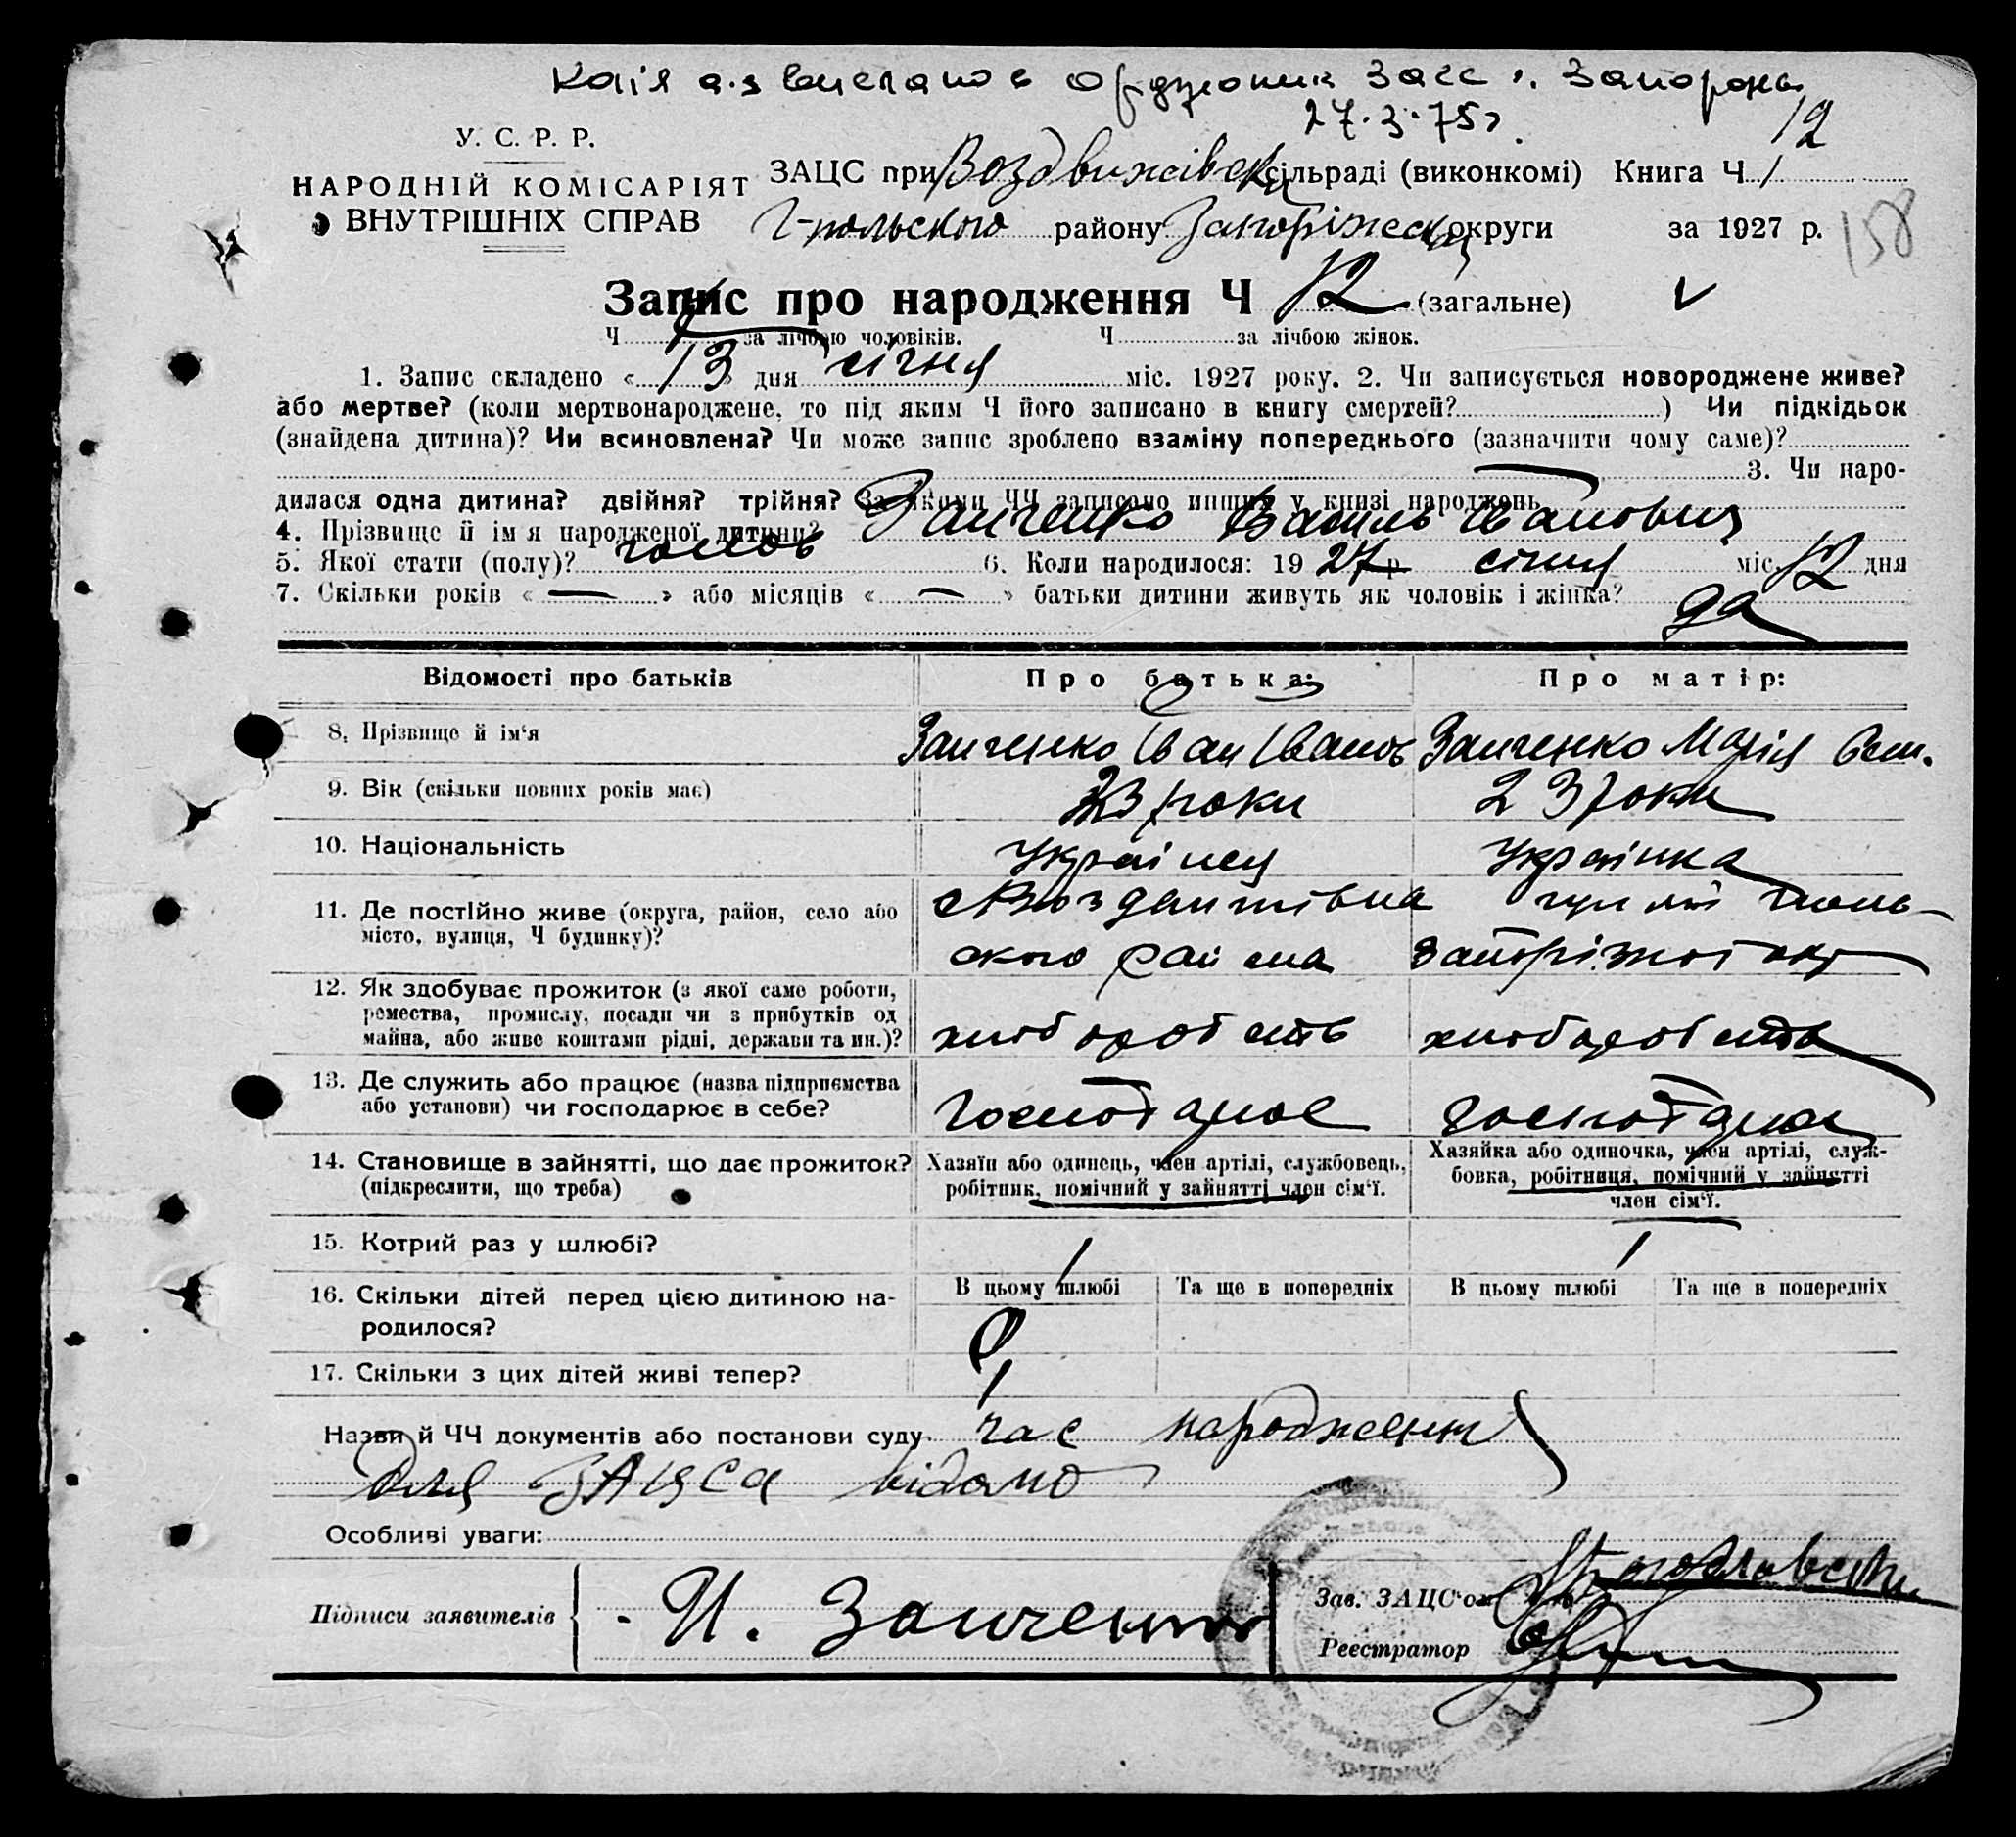 Копія а.з вислано в Орджоник Загс г. Запорожье
27.3.75г
12
У. С. Р. Р.
НАРОДНІЙ КОМІСАРІЯТ
ВНУТРІШНІХ СПРАВ
ЗАЦС при Воздвижівськ сільраді (виконкомі) Книга Ч 1
Г-польського району Запоріжськ округи за 1927 р.
158
Запис про народження Ч 12 (загальне) v
Ч за лічбою чоловіків. Ч за лічбою жінок.
1. Запис складено « 13 » дня січня міс. 1927 року. 2. Чи записується новороджене живе?
або мертве? (коли мертвонароджене, то під яким Ч його записано в книгу смертей? ) Чи підкідьок
(знайдена дитина)? Чи всиновлена? Чи може запис зроблено взаміну попереднього (зазначити чому саме)?
3. Чи наро-
дилася одна дитина? двійня? трійня? За якими ЧЧ записано инших у книзі народжень
4. Прізвище й ім'я народженої дитини? Заиченко Василь Іванович
5. Якої стати (полу)? чолов 6. Коли народилося: 19 27 р. січня міс. 12 дня
7. Скільки років « — » або місяців « — » батьки дитини живуть як чоловік і жінка? да
Відомості про батьків Про батька: Про матір:
8. Прізвище й ім‘я Заиченко Іван Іванов Заиченко Марія
9. Вік (скільки повних років має) 23 роки 23 роки
10. Національність Українец Українка
11. Де постійно живе (округа, район, село або
місто, вулиця, Ч будинку)?
ского района Запоріжкої окр
12. Як здобуває прожиток (з якої саме роботи,
ремества, промислу, посади чи з прибутків од
майна, або живе коштами рідні, держави та ин.)? хлібороб ств хлібороб ство
13. Де служить або працює (назва підприємства
або установи) чи господарює в себе? Господарює господарює
14. Становище в зайнятті, що дає прожиток?
(підкреслити, що треба)
Хазяїн або одинець, член артілі, службовець,
робітник, помічний у зайнятті член сім‘ї.
Хазяйка або одиночка, член артілі, служ-
бовка, робітниця, помічний у зайнятті
член сім‘ї.
15. Котрий раз у шлюбі? 1 1
16. Скільки дітей перед цією дитиною на-
родилося?
В цьому шлюбі Та ще в попередніх В цьому шлюбі Та ще в попередніх
17. Скільки з цих дітей живі тепер? 1
Назви й ЧЧ документів або постанови суду час народження
для ЗАЦСа відомо
Особливі уваги:
Підписи заявителів И. Заиченко
Зав. ЗАЦС‘ом
Реєстратор